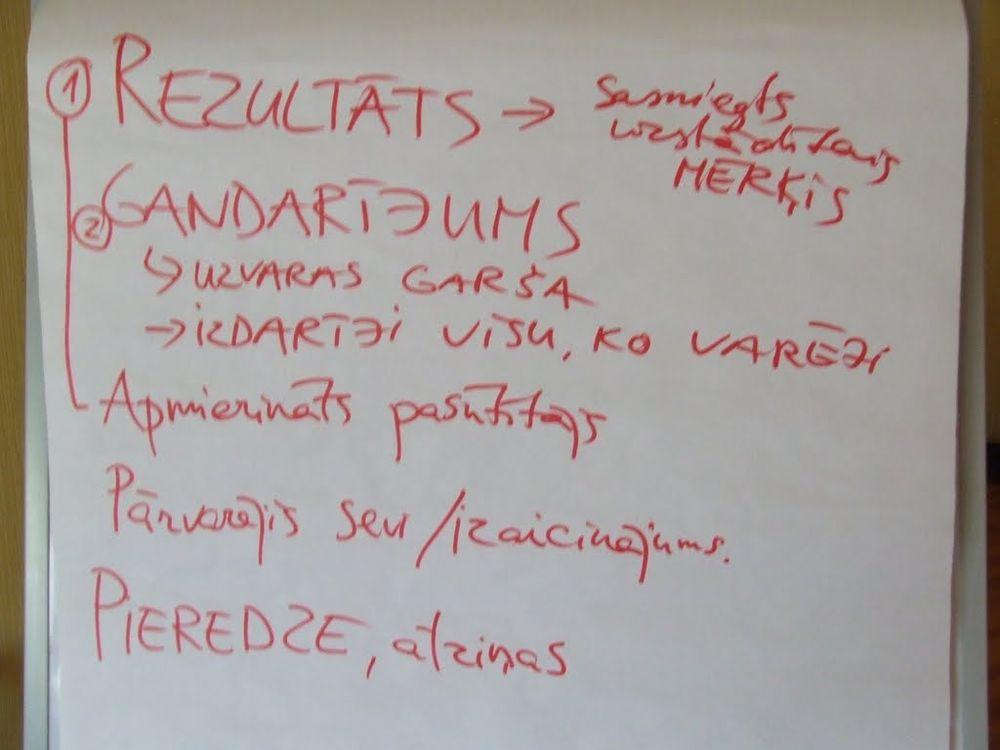 ① REZULTĀTS → Sasniegts
uzstādītais
MĒRĶIS
② GANDARĪJUMS
↳ UZVARAS GARŠA
→ iZDARĪJi VISU, KO VARĒJi
Apmierināts pasūtītājs
Pārvarējis sevi /izaicinājums.
PIEREDZE, atziņas